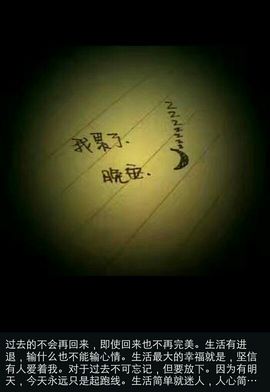 zzzzzz
我累了.
晚安.
过去的不会再回来，即使回来也不再完美。生活有进
退，输什么也不能输心情。生活最大的幸福就是，坚信
有人爱着我。对于过去不可忘记，但要放下。因为有明
天，今天永远只是起跑线。生活简单就迷人，人心简…